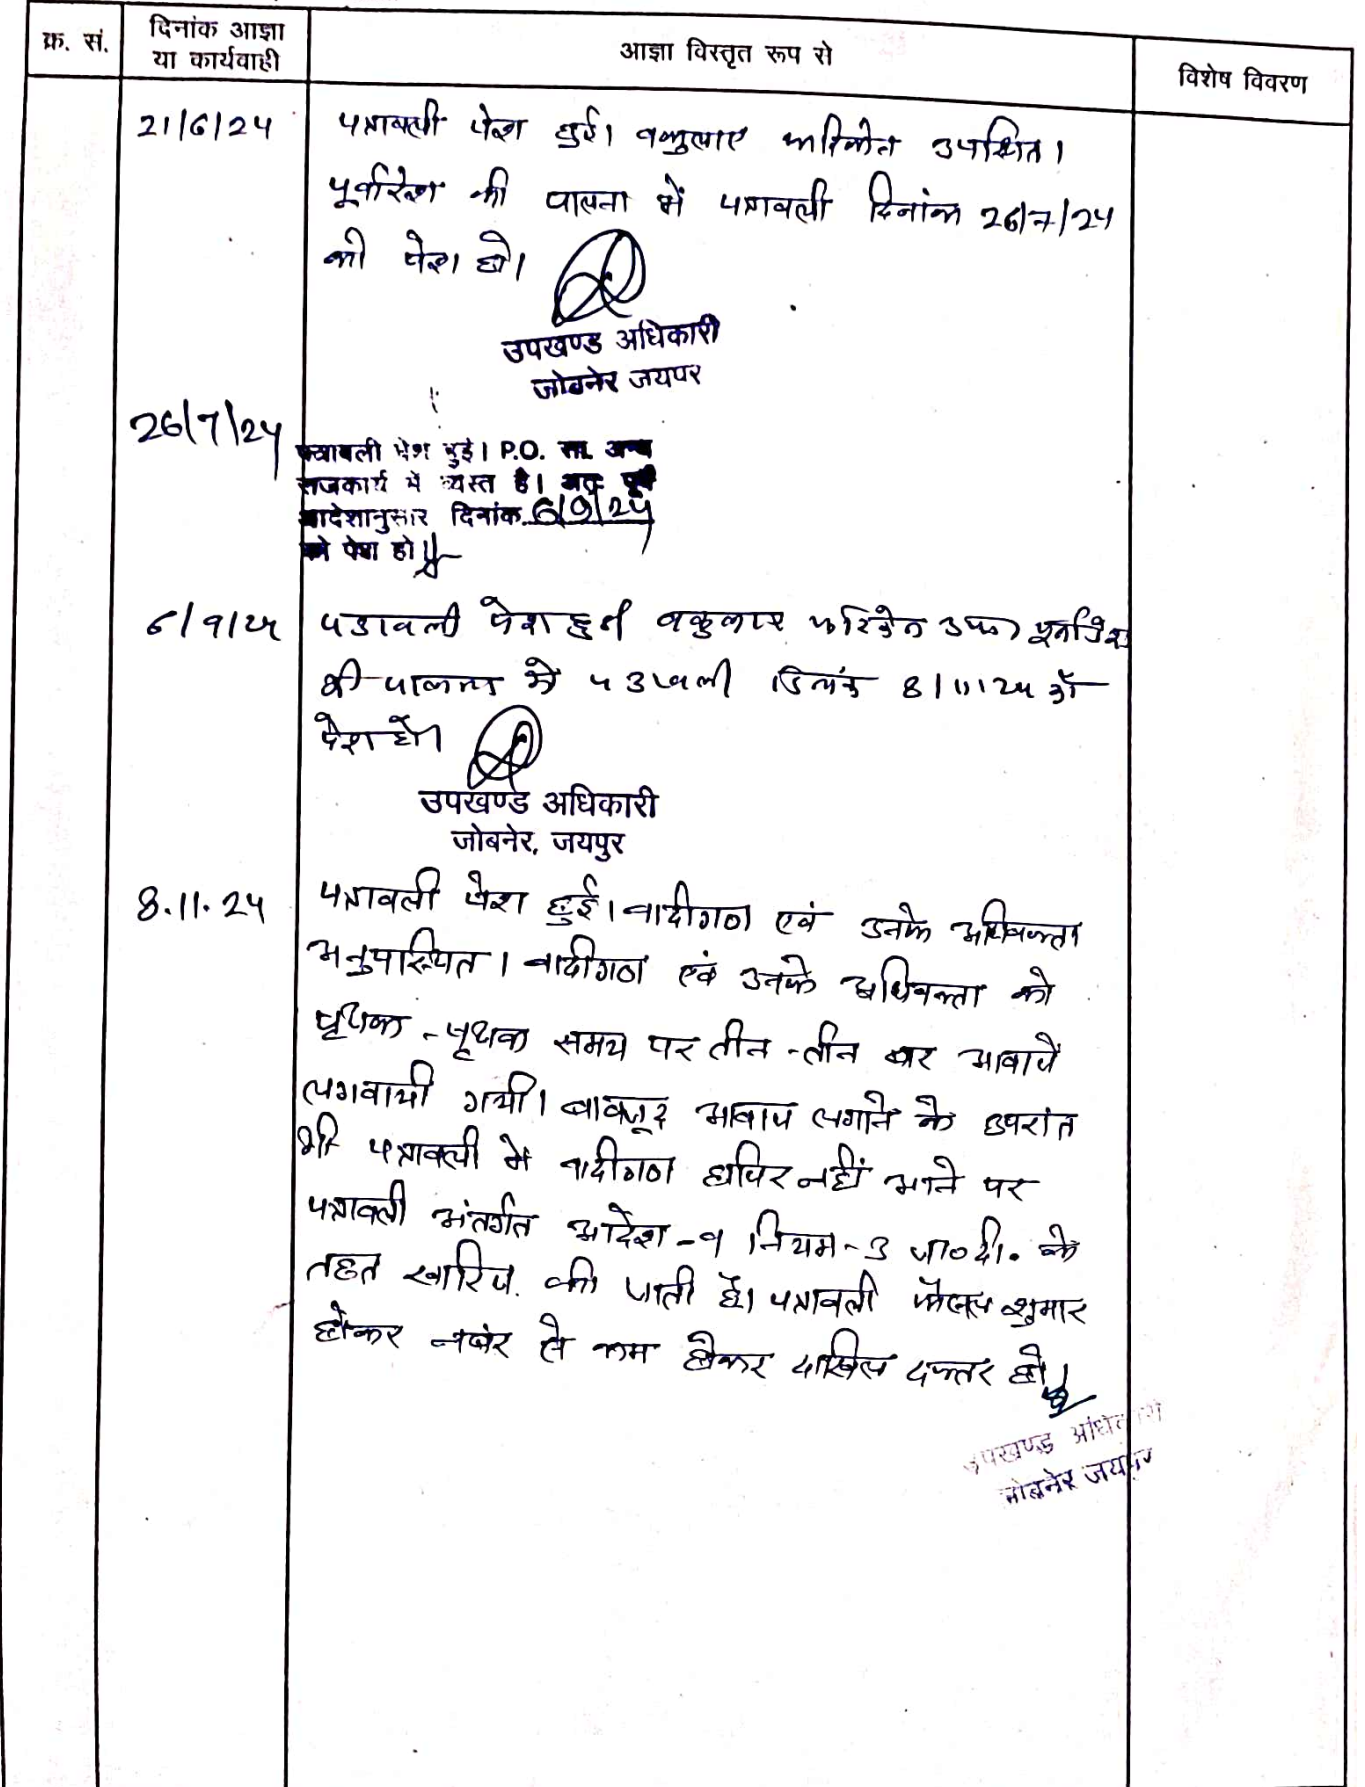 क्र. सं.
दिनांक आज्ञा
या कार्यवाही
आज्ञा विस्तृत रूप से
विशेष विवरण
21/6/24
पत्रावली पेश हुई। वकुलाए फरिकेन उपस्थित।
पूर्वादेश की पालना में पत्रावली दिनांक 26/7/24
को पेश हो।
उपखण्ड अधिकारी
जोबनेर जयपुर
26/7/24
पत्रावली पेश हुई। P.O. सा. अन्य
राजकार्य में व्यस्त है। अतः पूर्व
आदेशानुसार दिनांक 6/9/24
को पेश हो।
6/9/24
पत्रावली पेश हुई वकुलाए फरिकेन उप० पूर्वादेश
की पालना में पत्रावली दिनांक 8/11/24 को
पेश हो।
उपखण्ड अधिकारी
जोबनेर, जयपुर
8.11.24
पत्रावली पेश हुई। वादीगण एवं उनके अधिवक्ता
अनुपस्थित। वादीगण एवं उनके अधिवक्ता को
पृथक - पृथक समय पर तीन - तीन बार आवाजें
लगवायी गयी। बावजूद आवाज लगाने के उपरांत
भी पत्रावली में वादीगण हाजिर नहीं आने पर
पत्रावली अंतर्गत आदेश - 9 नियम - 3 जा०दी. के
तहत खारिज. की जाती है। पत्रावली फैसल शुमार
होकर नम्बर से कम होकर दाखिल दफ्तर हो।
उपखण्ड अधिकारी
जोबनेर जयपुर